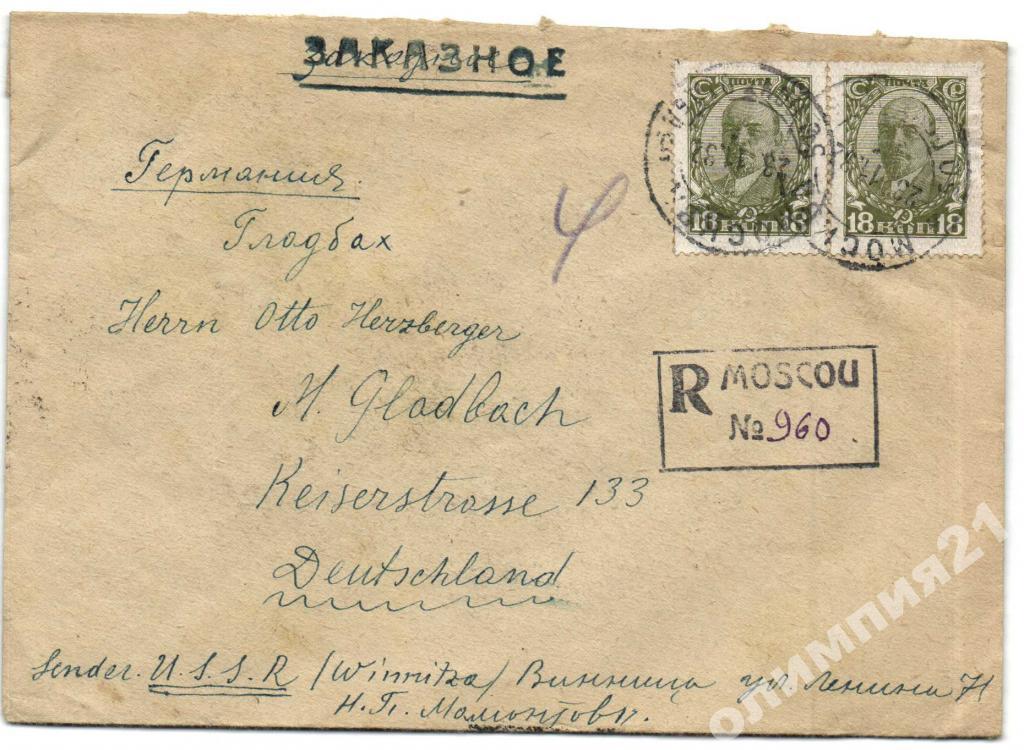 ЗАКАЗНОЕ
ПОЧТА
18 КОП. 18
ПОЧТА
18 КОП. 18
Германия.
Гладбах
4
Herrn Otto Herzberger
M. Gladbach
Keiserstrasse 133
Deutschland
R MOSCOU
№ 960.
Sender. U.S.S.R /Winnitza/ Винница ул Ленина
Н.П. Мамонтов
олимпия21